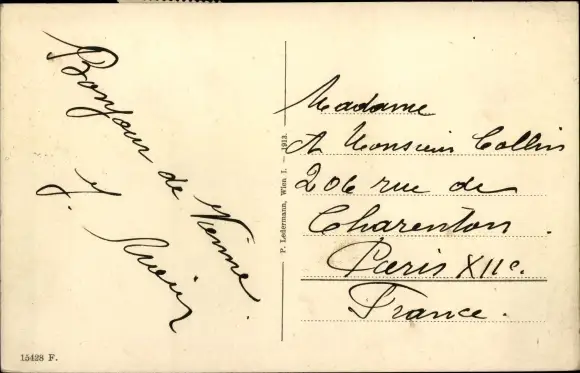 Bonjour de Vienne.
J.
Madame
& Monsieur Collin
206 rue de
Charenton.
Paris XIIe.
France.
P. Ledermann, Wien I. — 1913.
15428 F.